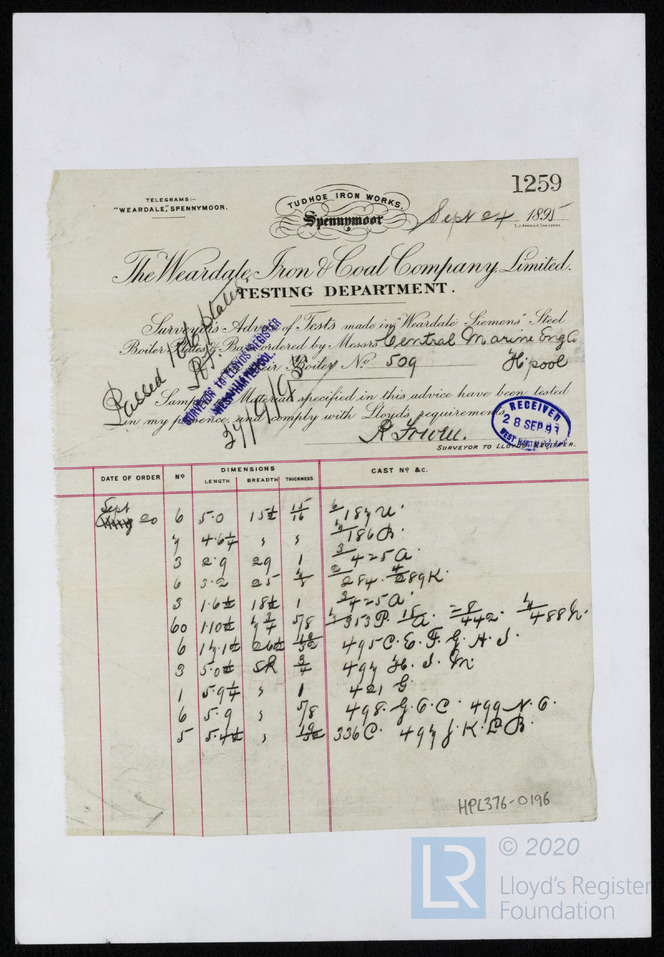 1259
TELEGRAMS:-
"WEARDALE," SPENNYMOOR.
TUDHOE IRON WORKS,
Spennymoor
Sept 24 1895
The Weardale Iron & Coal Company, Limited.
TESTING DEPARTMENT.
Surveyor's Advice of Tests made in "Weardale Siemens" Steel
Boiler Plates & Bars ordered by Messrs Central Marine Eng Co
Boiler No 509 H'pool
Samples of Material specified in this advice have been tested
in my presence, and comply with Lloyd's requirements,
SURVEYOR TO LLOYD'S REGISTER.
Passed
SURVEYOR TO LLOYD'S REGISTER
WEST HARTLEPOOL.
27/9/95
RECEIVED
28 SEP 95
WEST HARTLEPOOL
DATE OF ORDER No DIMENSIONS LENGTH BREADTH THICKNESS CAST No &c.
Sept 20 6 5.0 15½ 15/16 187 U.
7 4.6¼ " " 186 B.
3 2.9 29 1 3/425 A.
6 3.2 25 7/8 2/284. 4/289 K.
3 1.6½ 18½ 1 3/425 A.
60 1.10½ 7¾ 5/8 353 P. 442. 488 h.
6 26½ 19/32 495 C. E. F. G. H. J.
3 5.0½ SK 3/4 497 H. J. M.
1 5.9¼ " 1 421 G
6 5.9 " 5/8 498. G. O. C. 499 N. O.
5 5.4½ " 19/32 336 C. 497 J. K. L. B.
HPL376-0196
LR
© 2020
Lloyd's Register
Foundation